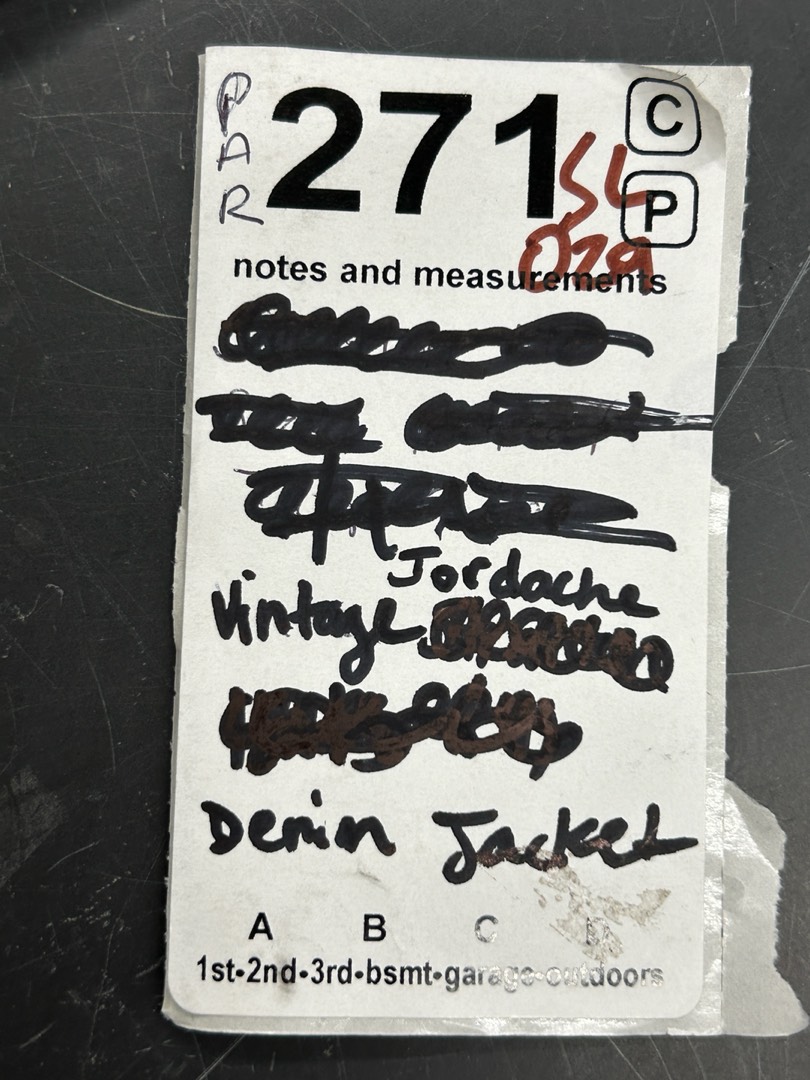 PAR
271
C
P
SL
029
notes and measurements
Jordache
Vintage
Denim Jacket
A B C D
1st•2nd•3rd•bsmt•garage•outdoors